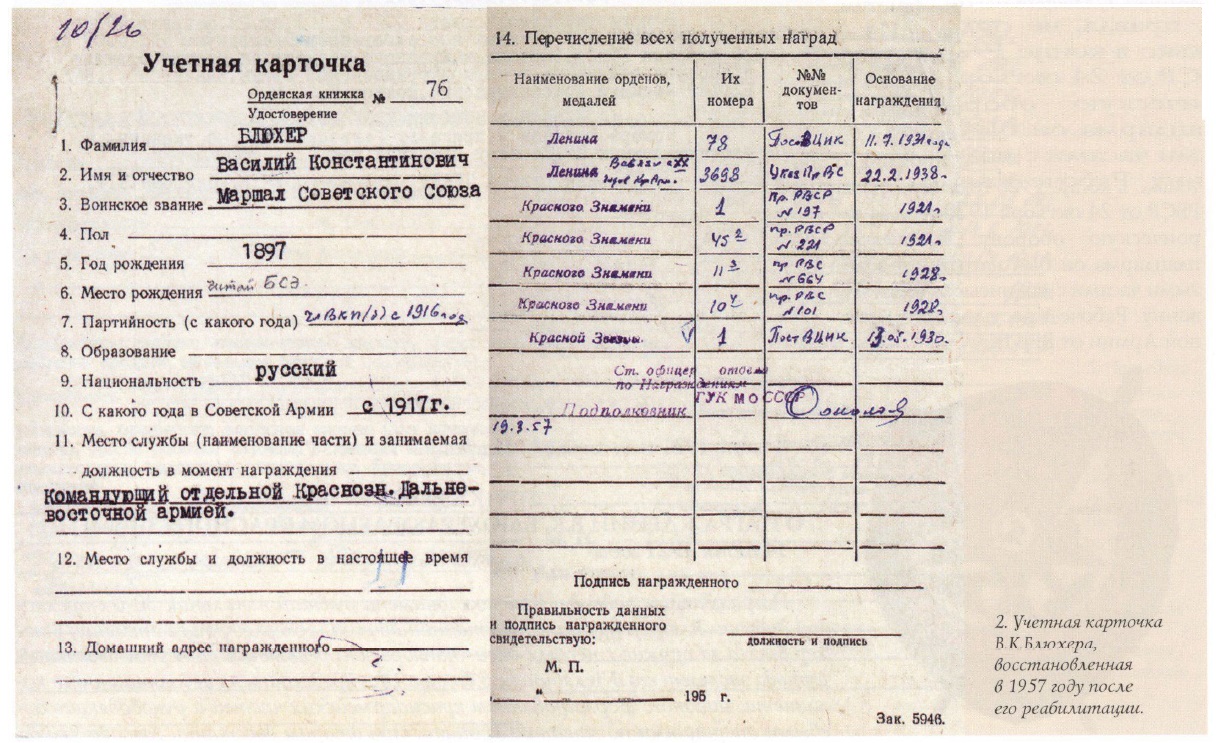 10/26
Учетная карточка
Орденская книжка № 76
Удостоверение
1. Фамилия БЛЮХЕР
2. Имя и отчество Василий Константинович
3. Воинское звание Маршал Советского Союза
4. Пол
5. Год рождения 1897
6. Место рождения читай БСЭ.
7. Партийность (с какого года) чл ВКП/б/ с 1916 год
8. Образование
9. Национальность русский
10. С какого года в Советской Армии с 1917г.
11. Место службы (наименование части) и занимаемая
должность в момент награждения
Командующий отдельной Краснозн. Дальне-
восточной армией.
12. Место службы и должность в настоящее время
13. Домашний адрес награжденного
14. Перечисление всех полученных наград
Наименование орденов, медалей | Их номера | №№ документов | Основание награждения
Ленина 78 Пост ВЦИК 11.7.1931 года
Ленина 3698 Указ ПрВС 22.2.1938г.
Красного Знамени 1 Пр. РВСР N 197 1921г.
Красного Знамени 45 2 пр. РВСР N 221 1921г.
Красного Знамени 11 3 пр РВС N 664 1928г.
Красного Знамени 10 4 пр. РВС N 101 1928г.
Красной Звезды 1 Пост ВЦИК 13.05.1930г.
Ст. офицер отдела
по Награждениям
ГУК МО СССР
Подполковник
19.3.57
Подпись награжденного
Правильность данных
и подпись награжденного
свидетельствую:
должность и подпись
М. П.
" 195 г.
Зак. 5946.
2. Учетная карточка
В.К.Блюхера,
восстановленная
в 1957 году после
его реабилитации.